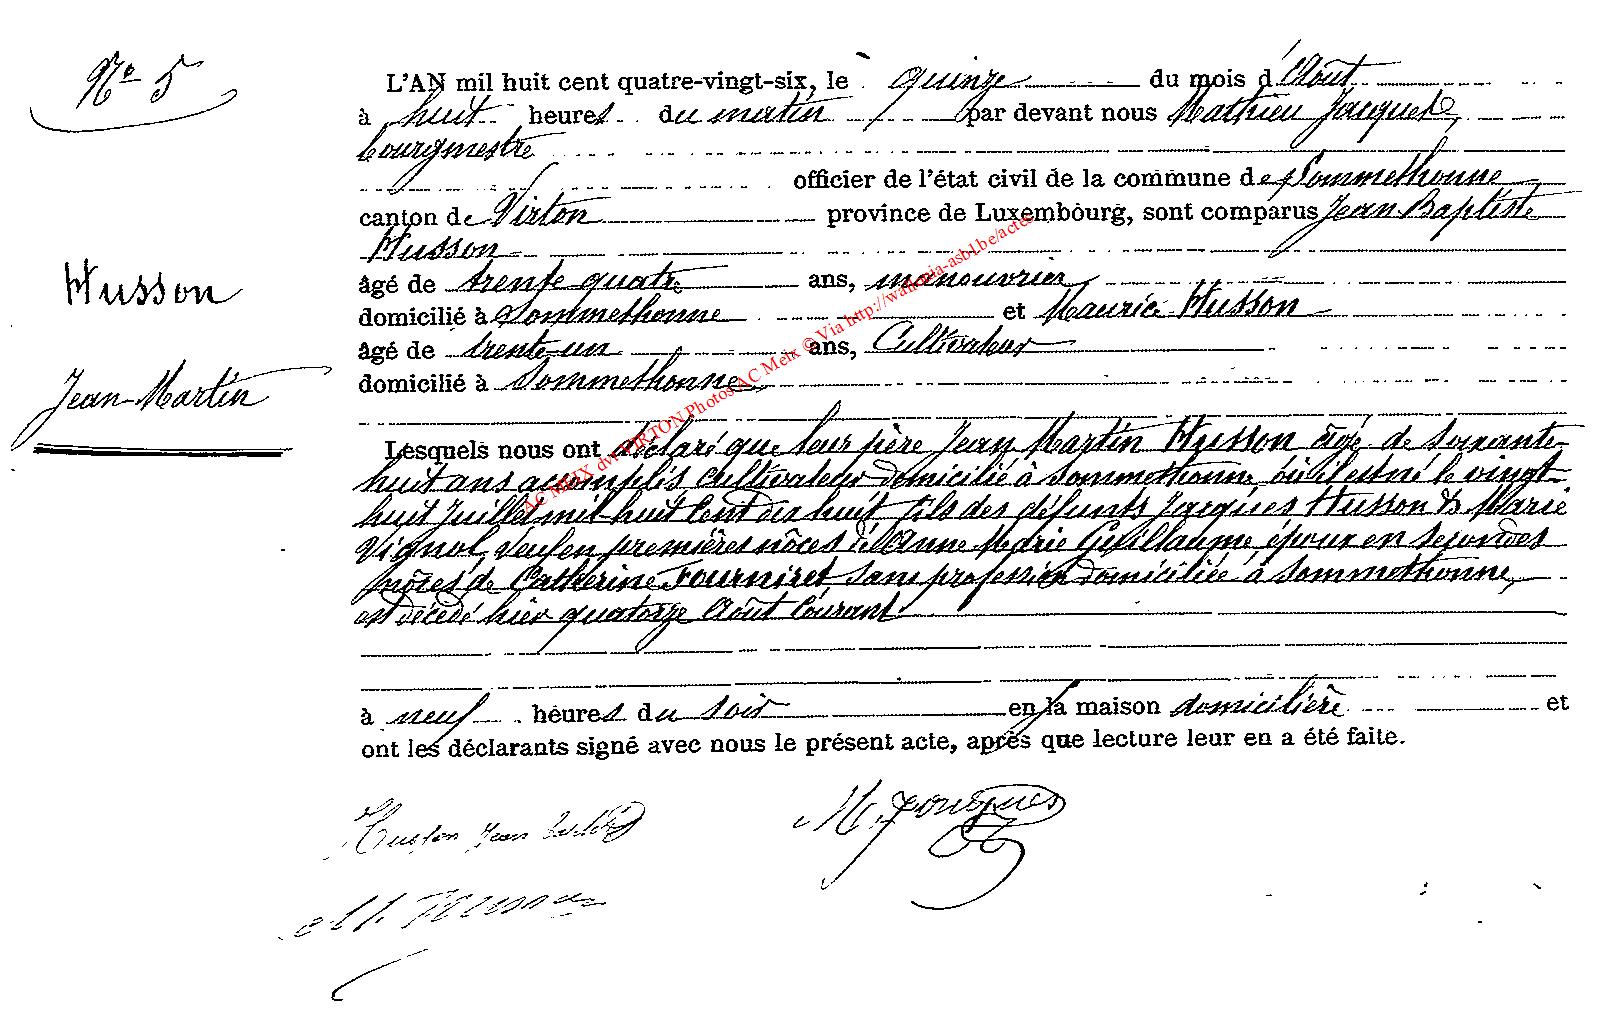 Nº 5
L'AN mil huit cent quatre-vingt-six, le quinze du mois d'Août
à huit heures du matin par devant nous Mathieu Jacques,
bourgmestre
officier de l'état civil de la commune de Sommethonne
canton de Virton province de Luxembourg, sont comparus Jean-Baptiste
Husson
âgé de trente quatre ans, manouvrier
domicilié à Sommethonne et Maurice Husson
âgé de trente-un ans, Cultivateur
domicilié à Sommethonne
Husson
Jean-Martin
Lesquels nous ont déclaré que leur père Jean Martin Husson âgé de soixante-
huit ans accomplis cultivateur domicilié à Sommethonne, où il est né le vingt-
huit Juillet mil huit Cent dix huit fils des défunts Jacques Husson & Marie
Vignol, Veuf en premières nôces de Anne Marie Guillaume, époux en secondes
nôces de Catherine Fourniret, sans profession domiciliée à Sommethonne,
est décédé hier quatorze Août Courant
à neuf heures du soir en la maison domicilière et
ont les déclarants signé avec nous le présent acte, après que lecture leur en a été faite.
Husson Jean
M. Jacques
Husson
AC MEIX dvt VIRTON Photos AC Meix © Via http://wallonia-asbl.be/actes